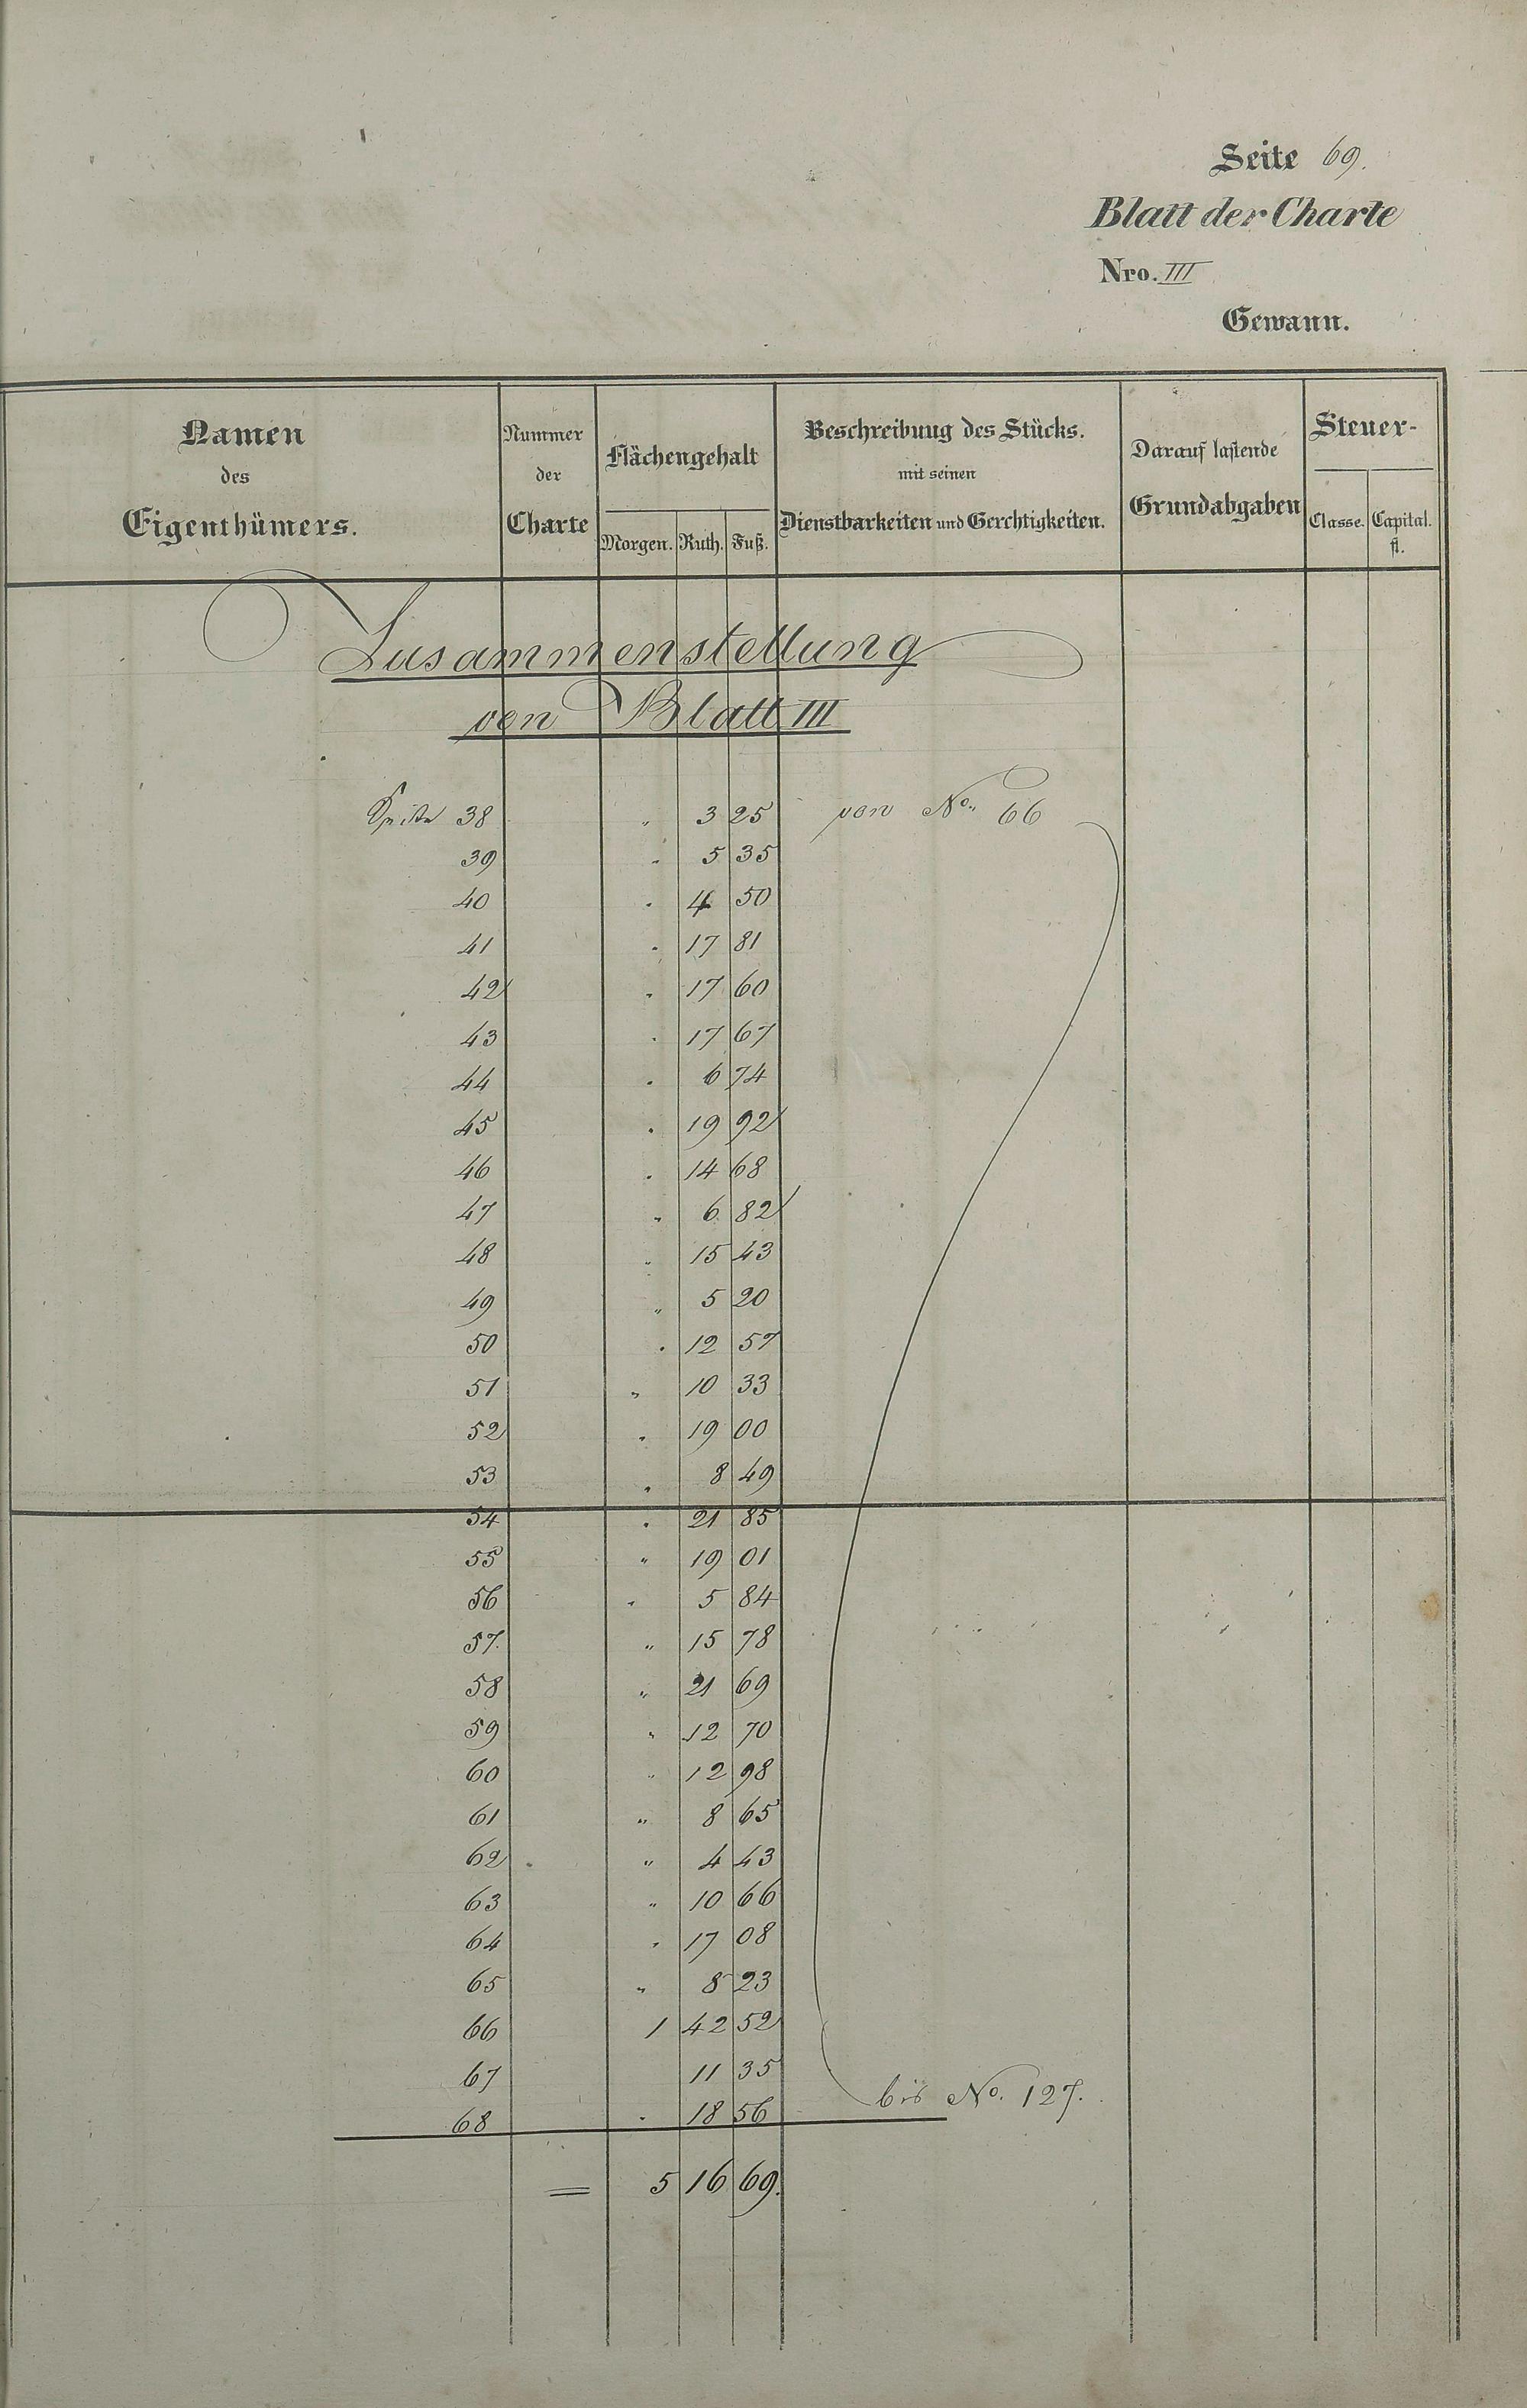 Seite 69.
Blatt der Charte
Nro. III
Gewann.
Namen des Eigenthümers.
Nummer der Charte
Flächengehalt
Morgen. Ruth. Fuß.
Beschreibung des Stücks. mit seinen Dienstbarkeiten und Gerechtigkeiten.
Darauf lastende Grundabgaben
Steuer-
Classe. Capital. fl.
Zusammenstellung
von Blatt III
Seite 38 " 3 25 von No. 66
39 " 5 35
40 " 4 50
41 " 17 81
42 " 17 60
43 " 17 67
44 " 6 74
45 " 19 92
46 " 14 68
47 " 6 82
48 " 15 43
49 " 5 20
50 " 12 57
51 " 10 33
52 " 19 00
53 " 8 49
54 " 21 85
55 " 19 01
56 " 5 84
57. " 15 78
58 " 21 69
59 " 12 70
60 " 12 98
61 " 8 65
62 " 4 43
63 " 10 66
64 " 17 08
65 " 8 23
66 1 42 52
67 11 35
68 " 18 56 bis No. 127.
= 5 16 69.